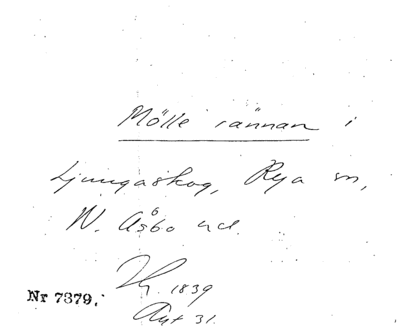 Mölle rännan i
Ljungaskog, Rya sn,
N. Åsbo hd.
1839
Nr 7379.
31.